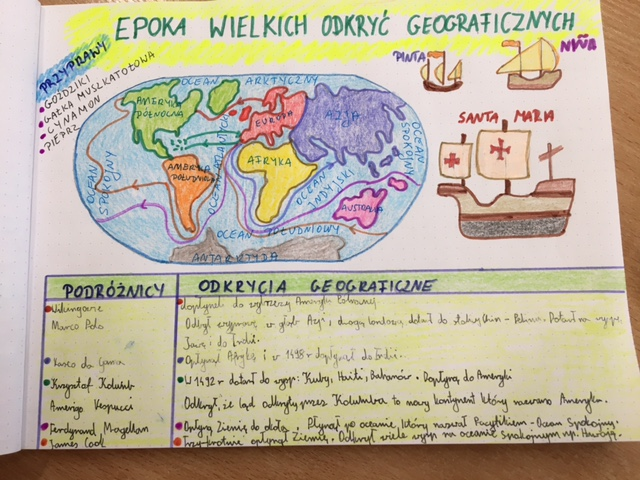 EPOKA WIELKICH ODKRYĆ GEOGRAFICZNYCH
PRZYPRAWY
GOŹDZIKI
GAŁKA MUSZKATOŁOWA
CYNAMON
PIEPRZ
PINTA
NIÑA
SANTA MARIA
OCEAN ARKTYCZNY
AMERYKA PÓŁNOCNA
EUROPA
AZJA
OCEAN SPOKOJNY
OCEAN ATLANTYCKI
AMERYKA POŁUDNIOWA
AFRYKA
OCEAN INDYJSKI
OCEAN SPOKOJNY
AUSTRALIA
OCEAN POŁUDNIOWY
ANTARKTYDA
PODRÓŻNICY
ODKRYCIA GEOGRAFICZNE
Wikingowie
dopłynęli do wybrzeży Ameryki Północnej
Marco Polo
Odbył wyprawę w głąb Azji, drogą lądową dotarł do stolicy Chin - Pekinu. Dotarł na wyspę
Jawę i do Indii.
Vasco da Gama
Opłynął Afrykę i w 1498 r dopłynął do Indii.
Krzysztof Kolumb
W 1492 r dotarł do wysp: Kuby, Haiti, Bahamów. Dopłynął do Ameryki
Amerigo Vespucci
Odkrył, że ląd odkryty przez Kolumba to nowy kontynent który nazwano Ameryką.
Ferdynand Magellan
Opłynął Ziemię do okoła. Pływał po oceanie, który nazwał Pacyfikiem - Ocean Spokojny.
James Cook
Trzy-krotnie opłynął Ziemię. Odkrył wiele wysp na oceanie Spokojnym np. Hawaje.